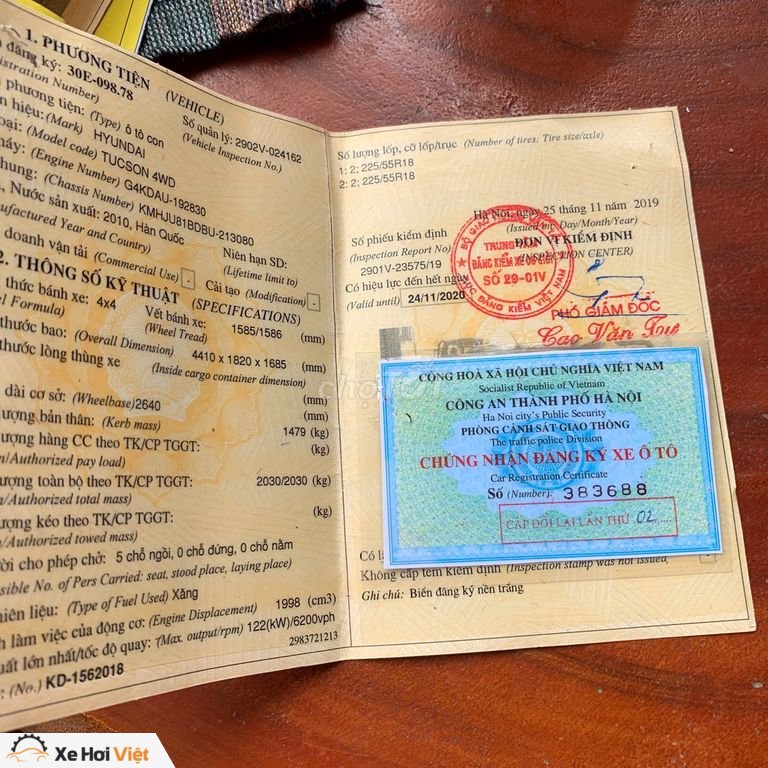 1. PHƯƠNG TIỆN (VEHICLE)
đăng ký: 30E-098.78
Số quản lý: 2902V-024162
(Vehicle Inspection No.)
phương tiện: (Type) ô tô con
hiệu: (Mark) HYUNDAI
(Model code) TUCSON 4WD
(Engine Number) G4KDAU-192830
(Chassis Number) KMHJU81BDBU-213080
Nước sản xuất: 2010, Hàn Quốc
Year and Country)
Niên hạn SD:
(Lifetime limit to)
doanh vận tải (Commercial Use) -
Cải tạo (Modification) -
2. THÔNG SỐ KỸ THUẬT (SPECIFICATIONS)
thức bánh xe: 4x4
Formula)
Vết bánh xe: 1585/1586 (mm)
(Wheel Tread)
thước bao: (Overall Dimension) 4410 x 1820 x 1685 (mm)
thước lòng thùng xe (Inside cargo container dimension)
(mm)
dài cơ sở: (Wheelbase) 2640 (mm)
bản thân: (Kerb mass) 1479 (kg)
hàng CC theo TK/CP TGGT: (kg)
/Authorized pay load)
toàn bộ theo TK/CP TGGT: 2030/2030 (kg)
/Authorized total mass)
kéo theo TK/CP TGGT: (kg)
/Authorized towed mass)
cho phép chở: 5 chỗ ngồi, 0 chỗ đứng, 0 chỗ nằm
No. of Pers Carried: seat, stood place, laying place)
(Type of Fuel Used) Xăng
làm việc của động cơ: (Engine Displacement) 1998 (cm3)
lớn nhất/tốc độ quay: (Max. output/rpm) 122(kW)/6200vph
2983721213
(No.) KD-1562018
Số lượng lốp, cỡ lốp/trục (Number of tires; Tire size/axle)
1: 2; 225/55R18
2: 2; 225/55R18
Hà Nội, ngày 25 tháng 11 năm 2019
(Issued on: Day/Month/Year)
Số phiếu kiểm định
(Inspection Report No)
2901V-23575/19
ĐƠN VỊ KIỂM ĐỊNH
(INSPECTION CENTER)
Có hiệu lực đến hết ngày
(Valid until) 24/11/2020
TRUNG
ĐĂNG KIỂM XE CƠ GIỚI
SỐ 29-01V
CỤC ĐĂNG KIỂM VIỆT NAM
PHÓ GIÁM ĐỐC
Cao Văn Tư
CỘNG HOÀ XÃ HỘI CHỦ NGHĨA VIỆT NAM
Socialist Republic of Vietnam
CÔNG AN THÀNH PHỐ HÀ NỘI
Ha Noi city's Public Security
PHÒNG CẢNH SÁT GIAO THÔNG
The traffic police Division
CHỨNG NHẬN ĐĂNG KÝ XE Ô TÔ
Car Registration Certificate
Số (Number): 383688
CẤP ĐỔI LẠI LẦN THỨ 02
Không cấp tem kiểm định (Inspection stamp was not issued)
Ghi chú: Biển đăng ký nền trắng
Xe Hơi Việt